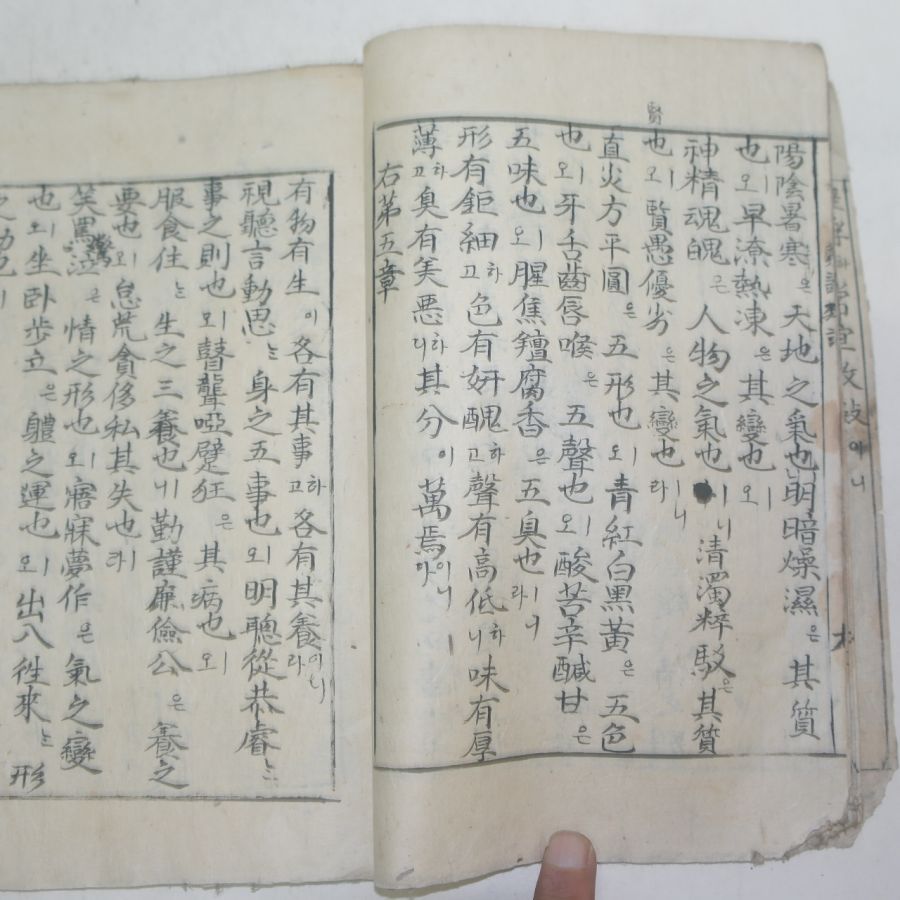 陽陰暑寒은天地之氣也ㅣ明暗燥濕은其質
也ㅣ오早潦熱凍은其變也ㅣ오
神精魂魄은人物之氣也ㅣ니清濁粹駁은其質
賢
也ㅣ오賢愚優劣은其變也ㅣ라니
直炎方平圓은五形也ㅣ오青紅白黑黃은五色
也ㅣ오牙舌齒唇喉은五聲也ㅣ오酸苦辛醎甘은
五味也ㅣ오腥焦羶腐香은五臭也ㅣ라니
形有鉅細하고色有姸醜하고聲有高低하니味有厚
薄하고臭有美惡하니라其分이萬焉이니
右第五章
有物有生이各有其事하고各有其養이니라
視聽言動思는身之五事也ㅣ오明聰從恭睿는
事之則也ㅣ오瞽聾啞躄狂은其病也ㅣ오
服食住는生之三養也ㅣ니勤謹廉儉公은養之
要也ㅣ오怠荒貪侈私其失也ㅣ라
笑罵泣은情之形也ㅣ오寤寐夢作은氣之變
也ㅣ오坐卧步立은軆之運也ㅣ오出入徃來는形